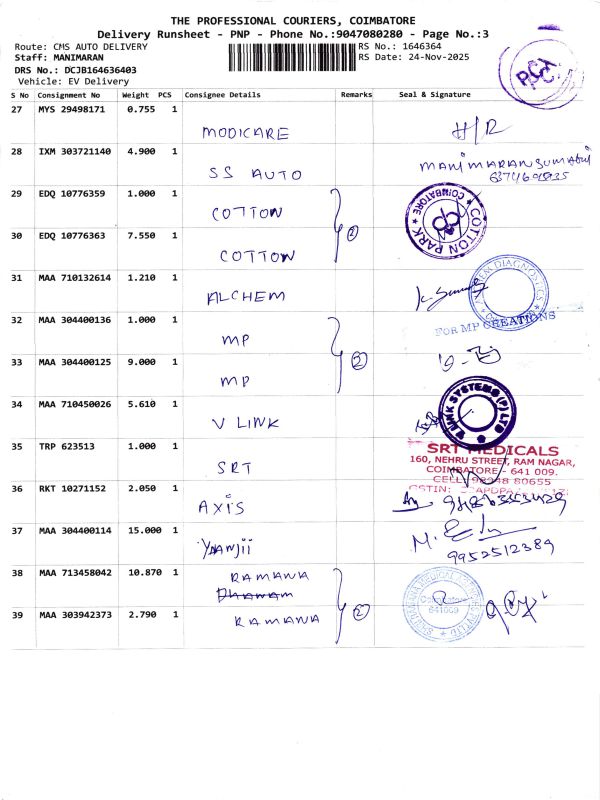 THE PROFESSIONAL COURIERS, COIMBATORE
Delivery Runsheet - PNP - Phone No.:9047080280 - Page No.:3
Route: CMS AUTO DELIVERY RS No.: 1646364
Staff: MANIMARAN RS Date: 24-Nov-2025
DRS No.: DCJB164636403
Vehicle: EV Delivery
S No Consignment No Weight PCS Consignee Details Remarks Seal & Signature
27 MYS 29498171 0.755 1
MODICARE H/R
28 IXM 303721140 4.900 1
SS AUTO
29 EDQ 10776359 1.000 1
COTTON
COTTON PARK COIMBATORE
30 EDQ 10776363 7.550 1 2
COTTON
31 MAA 710132614 1.210 1
ALCHEM
DIAGNOSTICS
32 MAA 304400136 1.000 1
FOR MP CREATIONS
MP
33 MAA 304400125 9.000 1 2
MP
34 MAA 710450026 5.610 1
V LINK
V LINK SYSTEMS (P) LTD
35 TRP 623513 1.000 1
SRT
SRT MEDICALS
160, NEHRU STREET, RAM NAGAR,
COIMBATORE - 641 009.
36 RKT 10271152 2.050 1
AXIS
37 MAA 304400114 15.000 1
9952512389
38 MAA 713458042 10.870 1
RAMANA
Dhanam
39 MAA 303942373 2.790 1 2
RAMANA